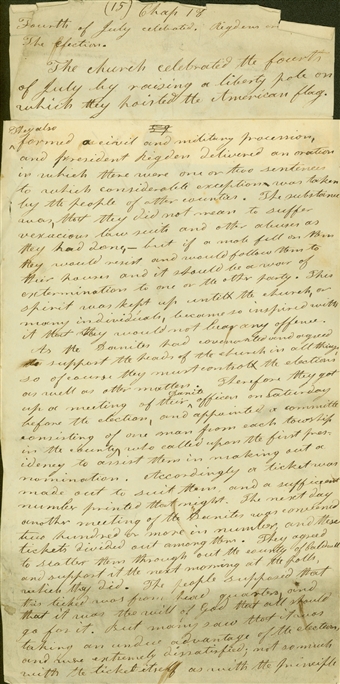 (15) Chap 18
Fourth of July celebrated. Rigdons or
The Election.
The church celebrated the fourth
of July by raising a liberty pole on
which they hoisted the American flag.
They also
59
formed a civil and military procession,
and president Rigdon delivered an oration
in which there were one or two sentences
to which considerable exceptions was taken
by the people of other counties. The substance
was, that they did not mean to suffer
vexacious law suits and other abuses as
they had done,— but if a mob fell on them
they would resist and would follow them to
their houses and it should be a war of
extermination to one or the other party. This
spirit was kept up until the church, or
many individuals, became so inspired with
it that they would not bear any offense.
As the Danites had covenanted and agreed
to support the heads of the church in all things,
so of course they must controll the elections,
as well as other matters. Therefore they got
up a meeting of their Danite officers on Saturday
before the election, and appointed a committee
consisting of one man from each township
in the county, who called upon the first pres-
idency to assist them in making out a
nomination. Accordingly a ticket was
made out to suit them, and a sufficient
number printed that night. The next day
another meeting of the Danites was convened
two hundred or more in number, and these
tickets divided out among them. They agreed
to scatter them through out the county of Caldwell
and support it the next morning at the polls
which they did. The people supposed that
this ticket was from head quarters, and
that it was the will of God that all should
go for it. But many saw that it was
taking an undue advantage of the election
and were extremely dissatisfied; not so much
with the ticket itself as with the principle